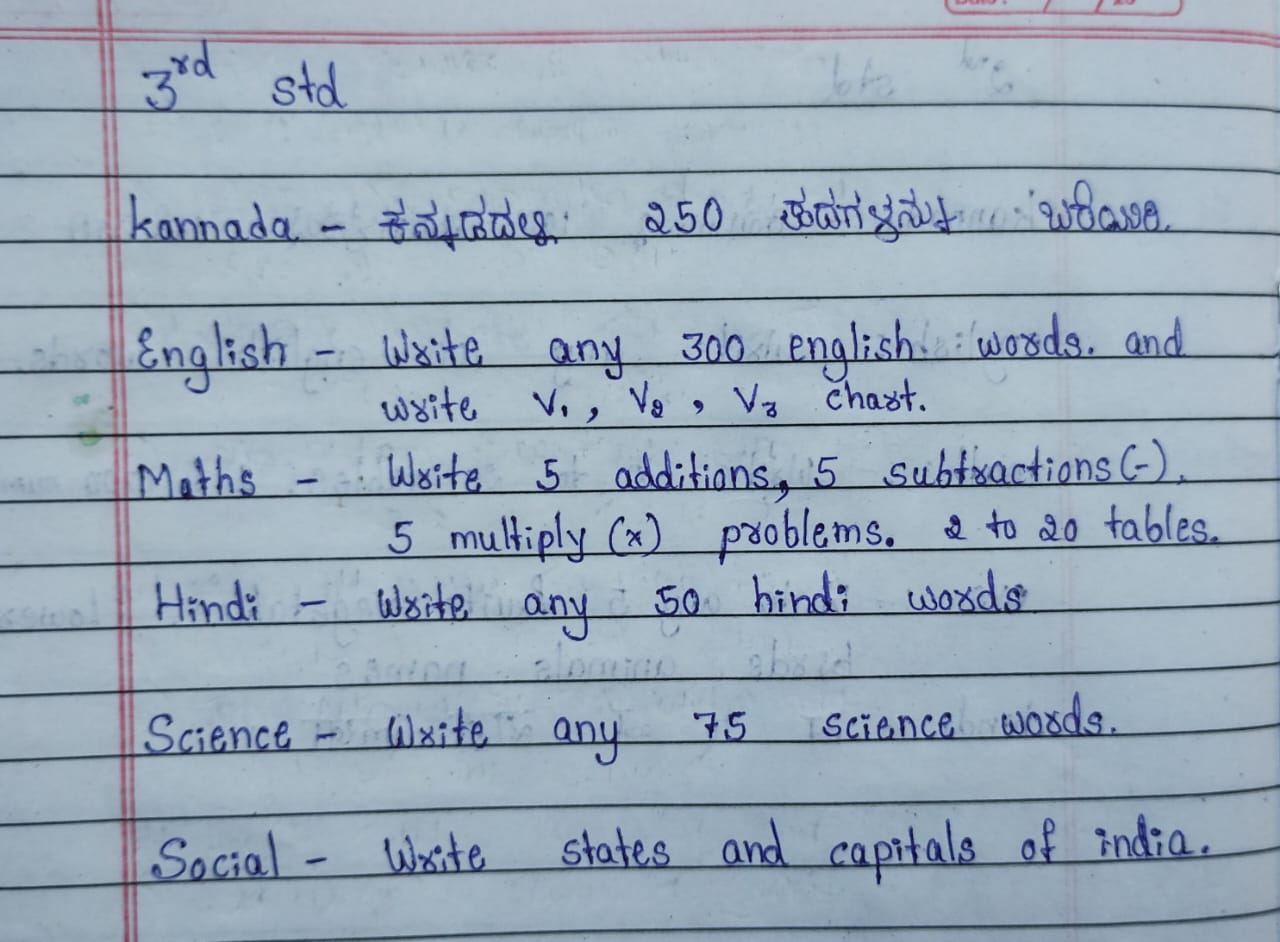 3rd std
Kannada - ಕನ್ನಡದಲ್ಲಿ 250 ಪದಗಳನ್ನು ಬರೆಯಿರಿ.
English - Write any 300 english words. and
write V1, V2, V3 chart.
Maths - Write 5 additions, 5 subtractions (-),
5 multiply (x) problems. 2 to 20 tables.
Hindi - Write any 50 hindi words
Science - Write any 75 science words.
Social - Write states and capitals of india.